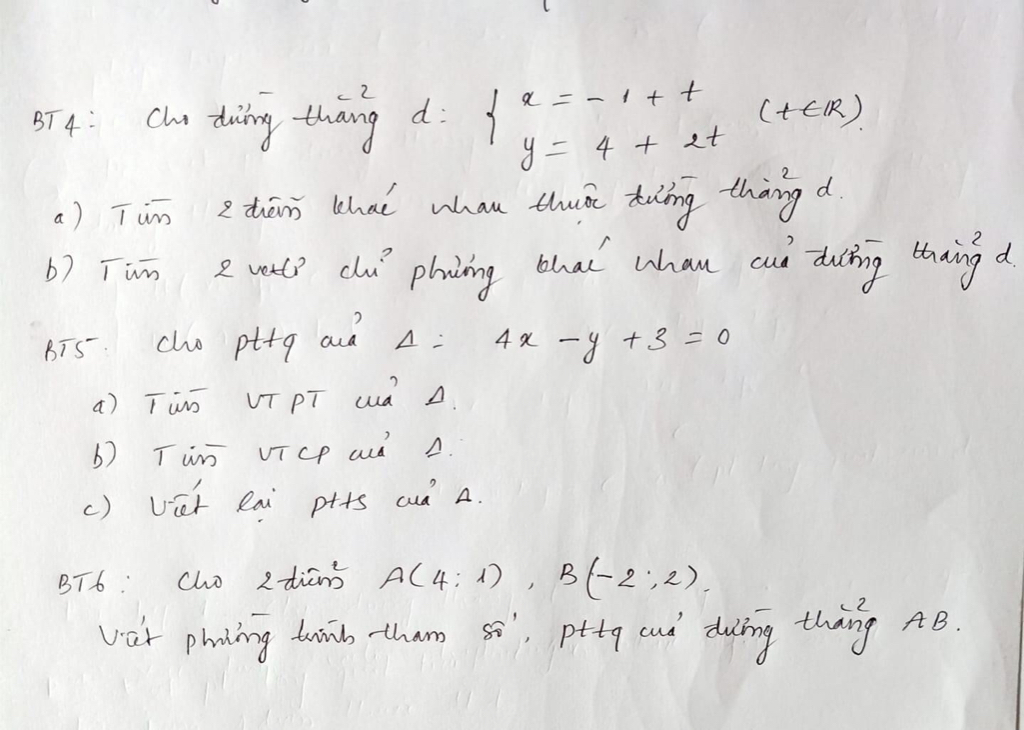 BT4: Cho đường thẳng d: { x = -1 + t
y = 4 + 2t (t∈R).
a) Tìm 2 điểm khác nhau thuộc đường thẳng d.
b) Tìm 2 vectơ chỉ phương khác nhau của đường thẳng d.
BT5. Cho pttq của Δ: 4x - y + 3 = 0
a) Tìm VTPT của Δ.
b) Tìm VTCP của Δ.
c) Viết lại ptts của Δ.
BT6: Cho 2 điểm A(4; 1), B(-2; 2).
Viết phương trình tham số, pttq của đường thẳng AB.